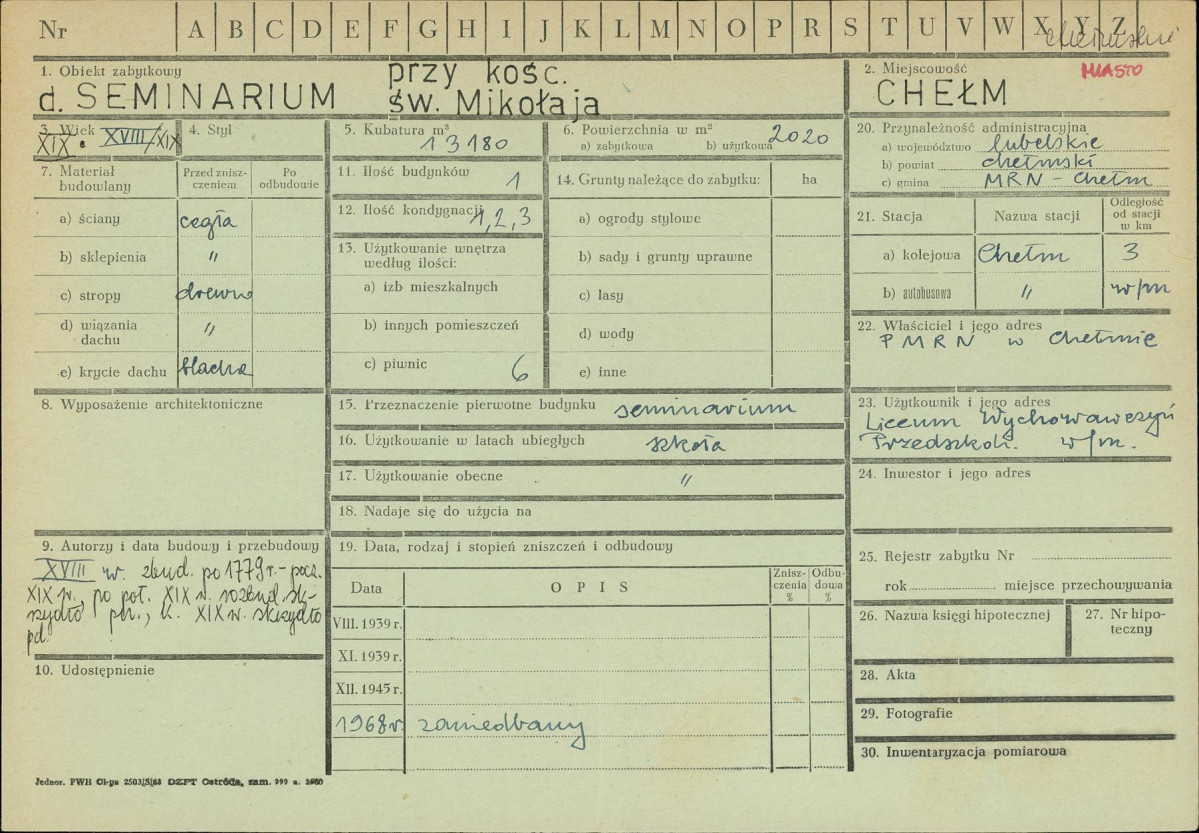 Nr A B C D E F G H I J K L M N O P R S T U V W X Y Z
MIASTO
1. Obiekt zabytkowy
d. SEMINARIUM przy kośc.
św. Mikołaja
2. Miejscowość
CHEŁM
3. Wiek
XIX. XVIII/XIX
4. Styl
5. Kubatura m³
13180
6. Powierzchnia w m²
a) zabytkowa b) użytkowa 2020
7. Materiał budowlany
Przed znisz-
czeniem
Po
odbudowie
a) ściany cegła
b) sklepienia "
c) stropy drewno
d) wiązania
dachu "
e) krycie dachu blacha
8. Wyposażenie architektoniczne
9. Autorzy i data budowy i przebudowy
XVIII w. zbud. po 1779 r. - pocz.
XIX w., po poł. XIX w. rozbud. sk-
rzydło płn., k. XIX w. skrzydło
pd.
10. Udostępnienie
11. Ilość budynków 1
12. Ilość kondygnacji 1, 2, 3
13. Użytkowanie wnętrza
według ilości:
a) izb mieszkalnych
b) innych pomieszczeń
c) piwnic 6
14. Grunty należące do zabytku: ha
a) ogrody stylowe
b) sady i grunty uprawne
c) lasy
d) wody
e) inne
15. Przeznaczenie pierwotne budynku seminarium
16. Użytkowanie w latach ubiegłych szkoła
17. Użytkowanie obecne "
18. Nadaje się do użycia na
19. Data, rodzaj i stopień zniszczeń i odbudowy
Data OPIS
Znisz-
czenia
%
Odbu-
dowa
%
VIII. 1939 r.
XI. 1939 r.
XII. 1945 r.
1968 r. zaniedbany
20. Przynależność administracyjna
a) województwo lubelskie
b) powiat chełmski
c) gmina MRN - Chełm
21. Stacja Nazwa stacji
Odległość
od stacji
w km
a) kolejowa Chełm 3
b) autobusowa " w/m
22. Właściciel i jego adres
PMRN w Chełmie
23. Użytkownik i jego adres
Liceum Wychowawczyń
Przedszkoli. w/m.
24. Inwestor i jego adres
25. Rejestr zabytku Nr
rok miejsce przechowywania
26. Nazwa księgi hipotecznej
27. Nr hipo-
teczny
28. Akta
29. Fotografie
30. Inwentaryzacja pomiarowa
Jednor. PWH Ol-pa 2503/S/68 DZPT Ostróda, zam. 999 n.